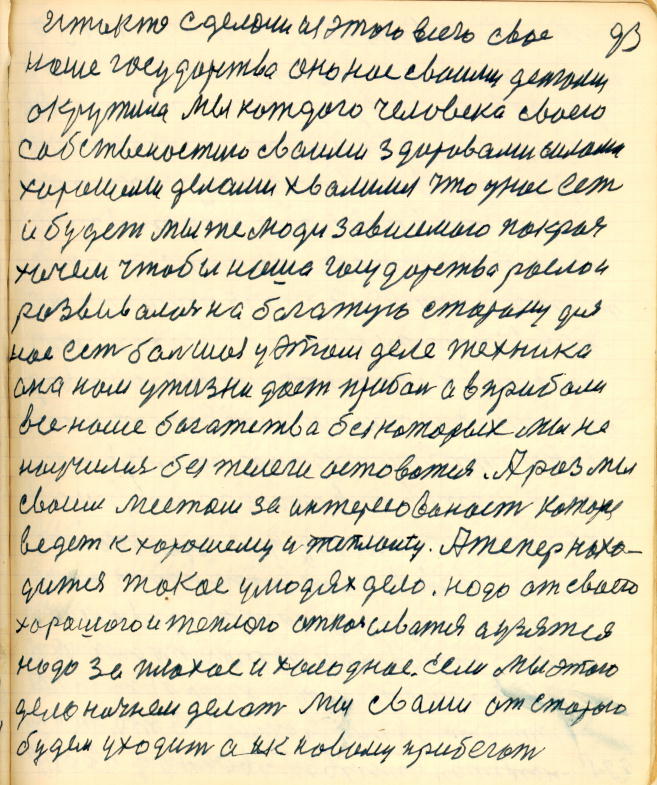 итикто сделони из этого всего свое 93
наше государства оно нас своими детоли
окружила мы каждого человека своего
собственостию своими здоровами силами
хорошими делами хвалимся что у нас ест
и будет мы же люди зависемого покроя
хочем чтобы наша государства рослои
розвивался на богатую старану для
нас ест большоя у этом деле техника
она нам у жизни дает прибол а в прибали
все наше богатства без которых мы не
научилися без телеги остоватся. А роз мы
своим местом за интересованост которе
ведет к хорошему и теплоиту. А тепер нахо-
дится токое у людях дело. надо от своего
хорошого и теплого отказыватся а узятся
надо за плохое и холодное. Если мы этого
дело начнем делат мы свами от старого
будем уходит а к новому прибегат